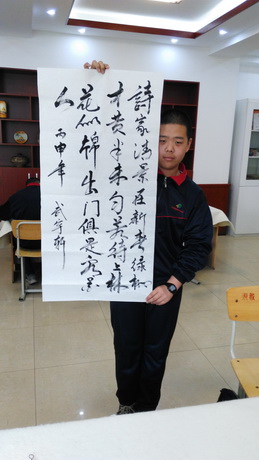 詩家清景在新春绿柳
才黄半未匀若待上林
花似锦出门俱是看花
人 丙申年 武宇